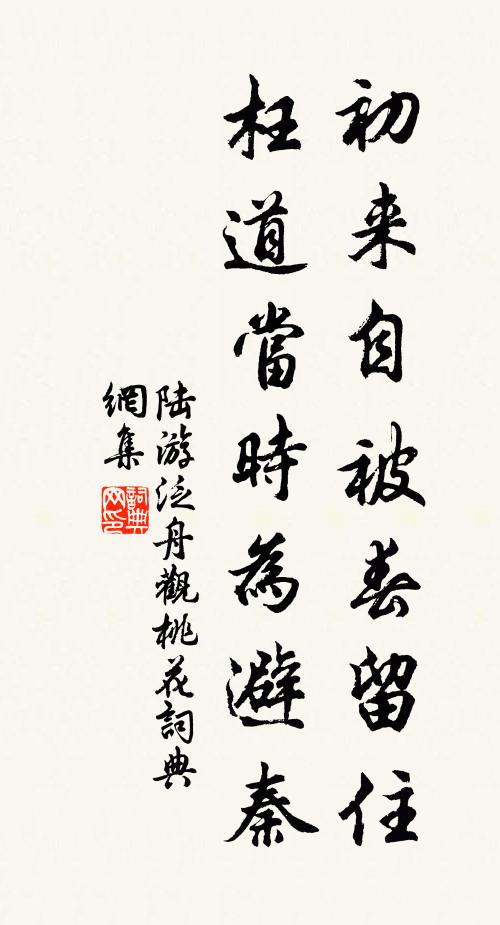 初来自被春留住
枉道當時為避秦
陆游泛舟觀桃花詞典
網集
詞典
网印